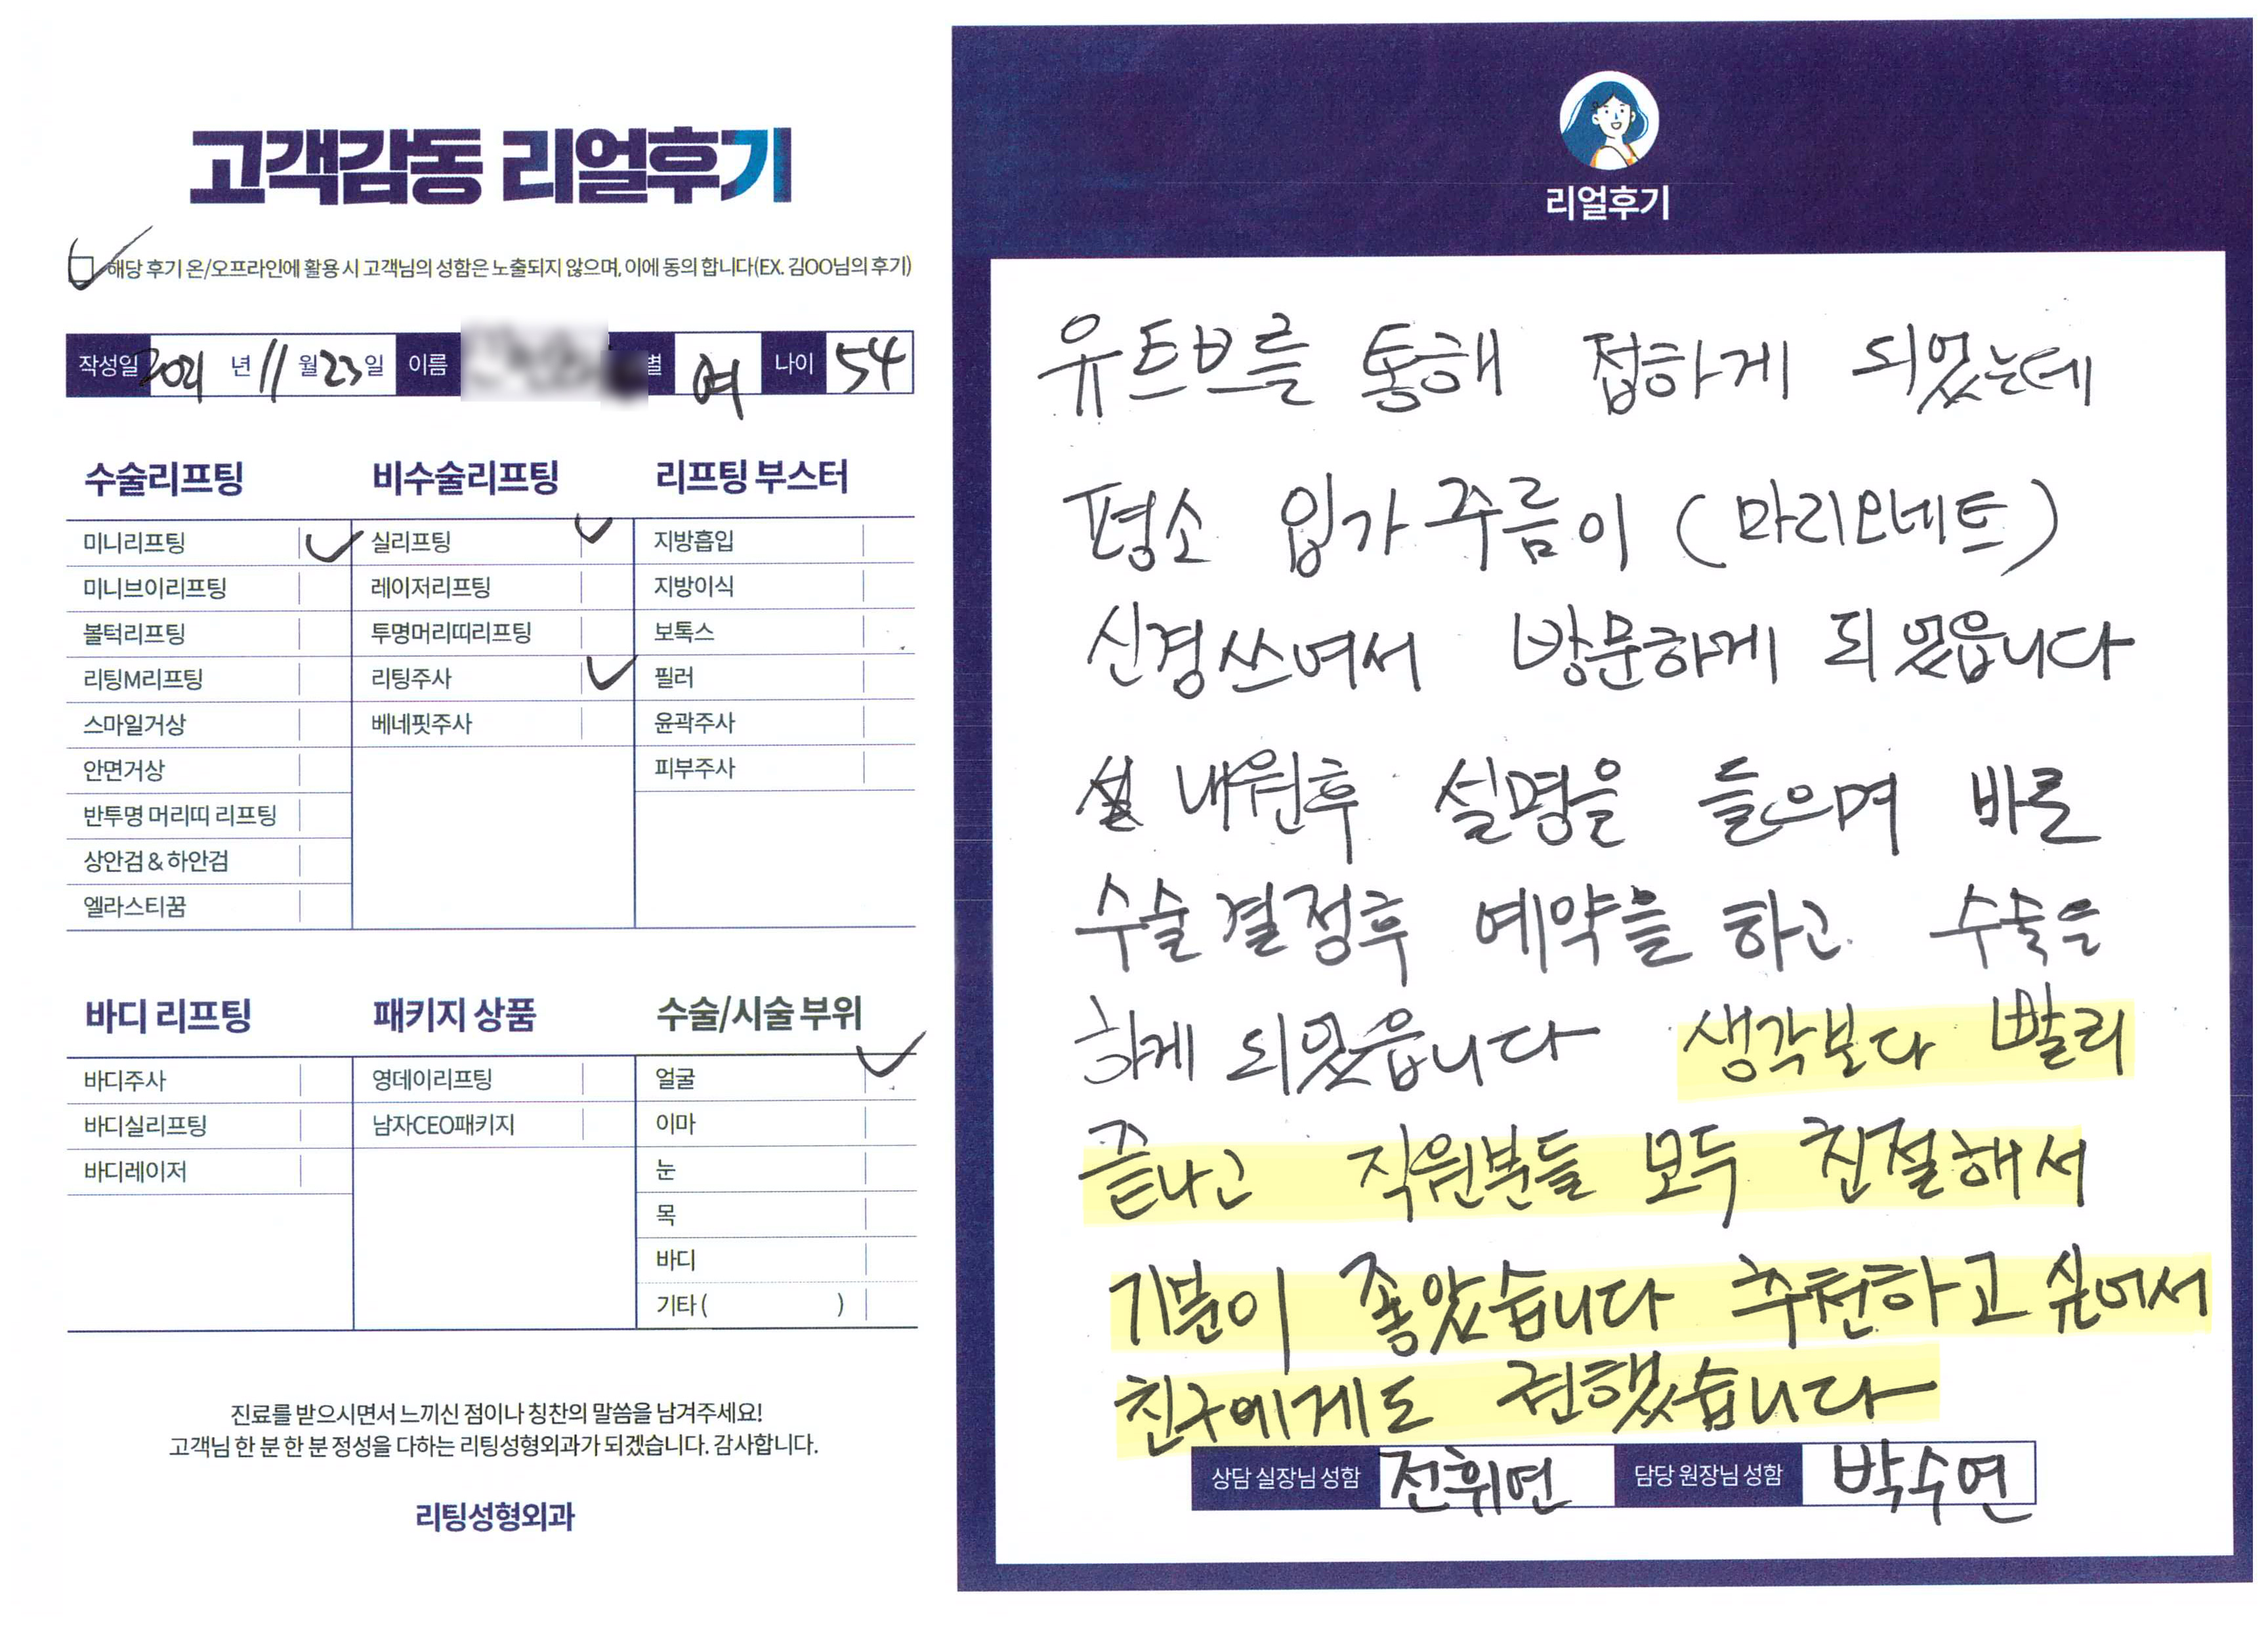 고객감동 리얼후기
해당 후기 온/오프라인에 활용 시 고객님의 성함은 노출되지 않으며, 이에 동의 합니다(EX. 김OO님의 후기)
작성일 2021 년 11 월 23 일 이름 별 여 나이 54
수술리프팅 비수술리프팅 리프팅 부스터
미니리프팅 실리프팅 지방흡입
미니브이리프팅 레이저리프팅 지방이식
볼턱리프팅 투명머리띠리프팅 보톡스
리팅M리프팅 리팅주사 필러
스마일거상 베네핏주사 윤곽주사
안면거상 피부주사
반투명 머리띠 리프팅
상안검 & 하안검
엘라스티꿈
바디 리프팅 패키지 상품 수술/시술 부위
바디주사 영데이리프팅 얼굴
바디실리프팅 남자CEO패키지 이마
바디레이저 눈
목
바디
기타 ( )
진료를 받으시면서 느끼신 점이나 칭찬의 말씀을 남겨주세요!
고객님 한 분 한 분 정성을 다하는 리팅성형외과가 되겠습니다. 감사합니다.
리팅성형외과
리얼후기
유트브를 통해 접하게 되었는데
평소 입가 주름이 (마리오네트)
신경쓰여서 방문하게 되었읍니다
내원후 설명을 들으며 바로
수술결정후 예약을 하고 수술을
하게 되었읍니다 생각보다 빨리
끝나고 직원분들 모두 친절해서
기분이 좋았습니다 추천하고 싶어서
친구에게도 권했습니다
상담 실장님 성함 전휘연 담당 원장님 성함 박수연